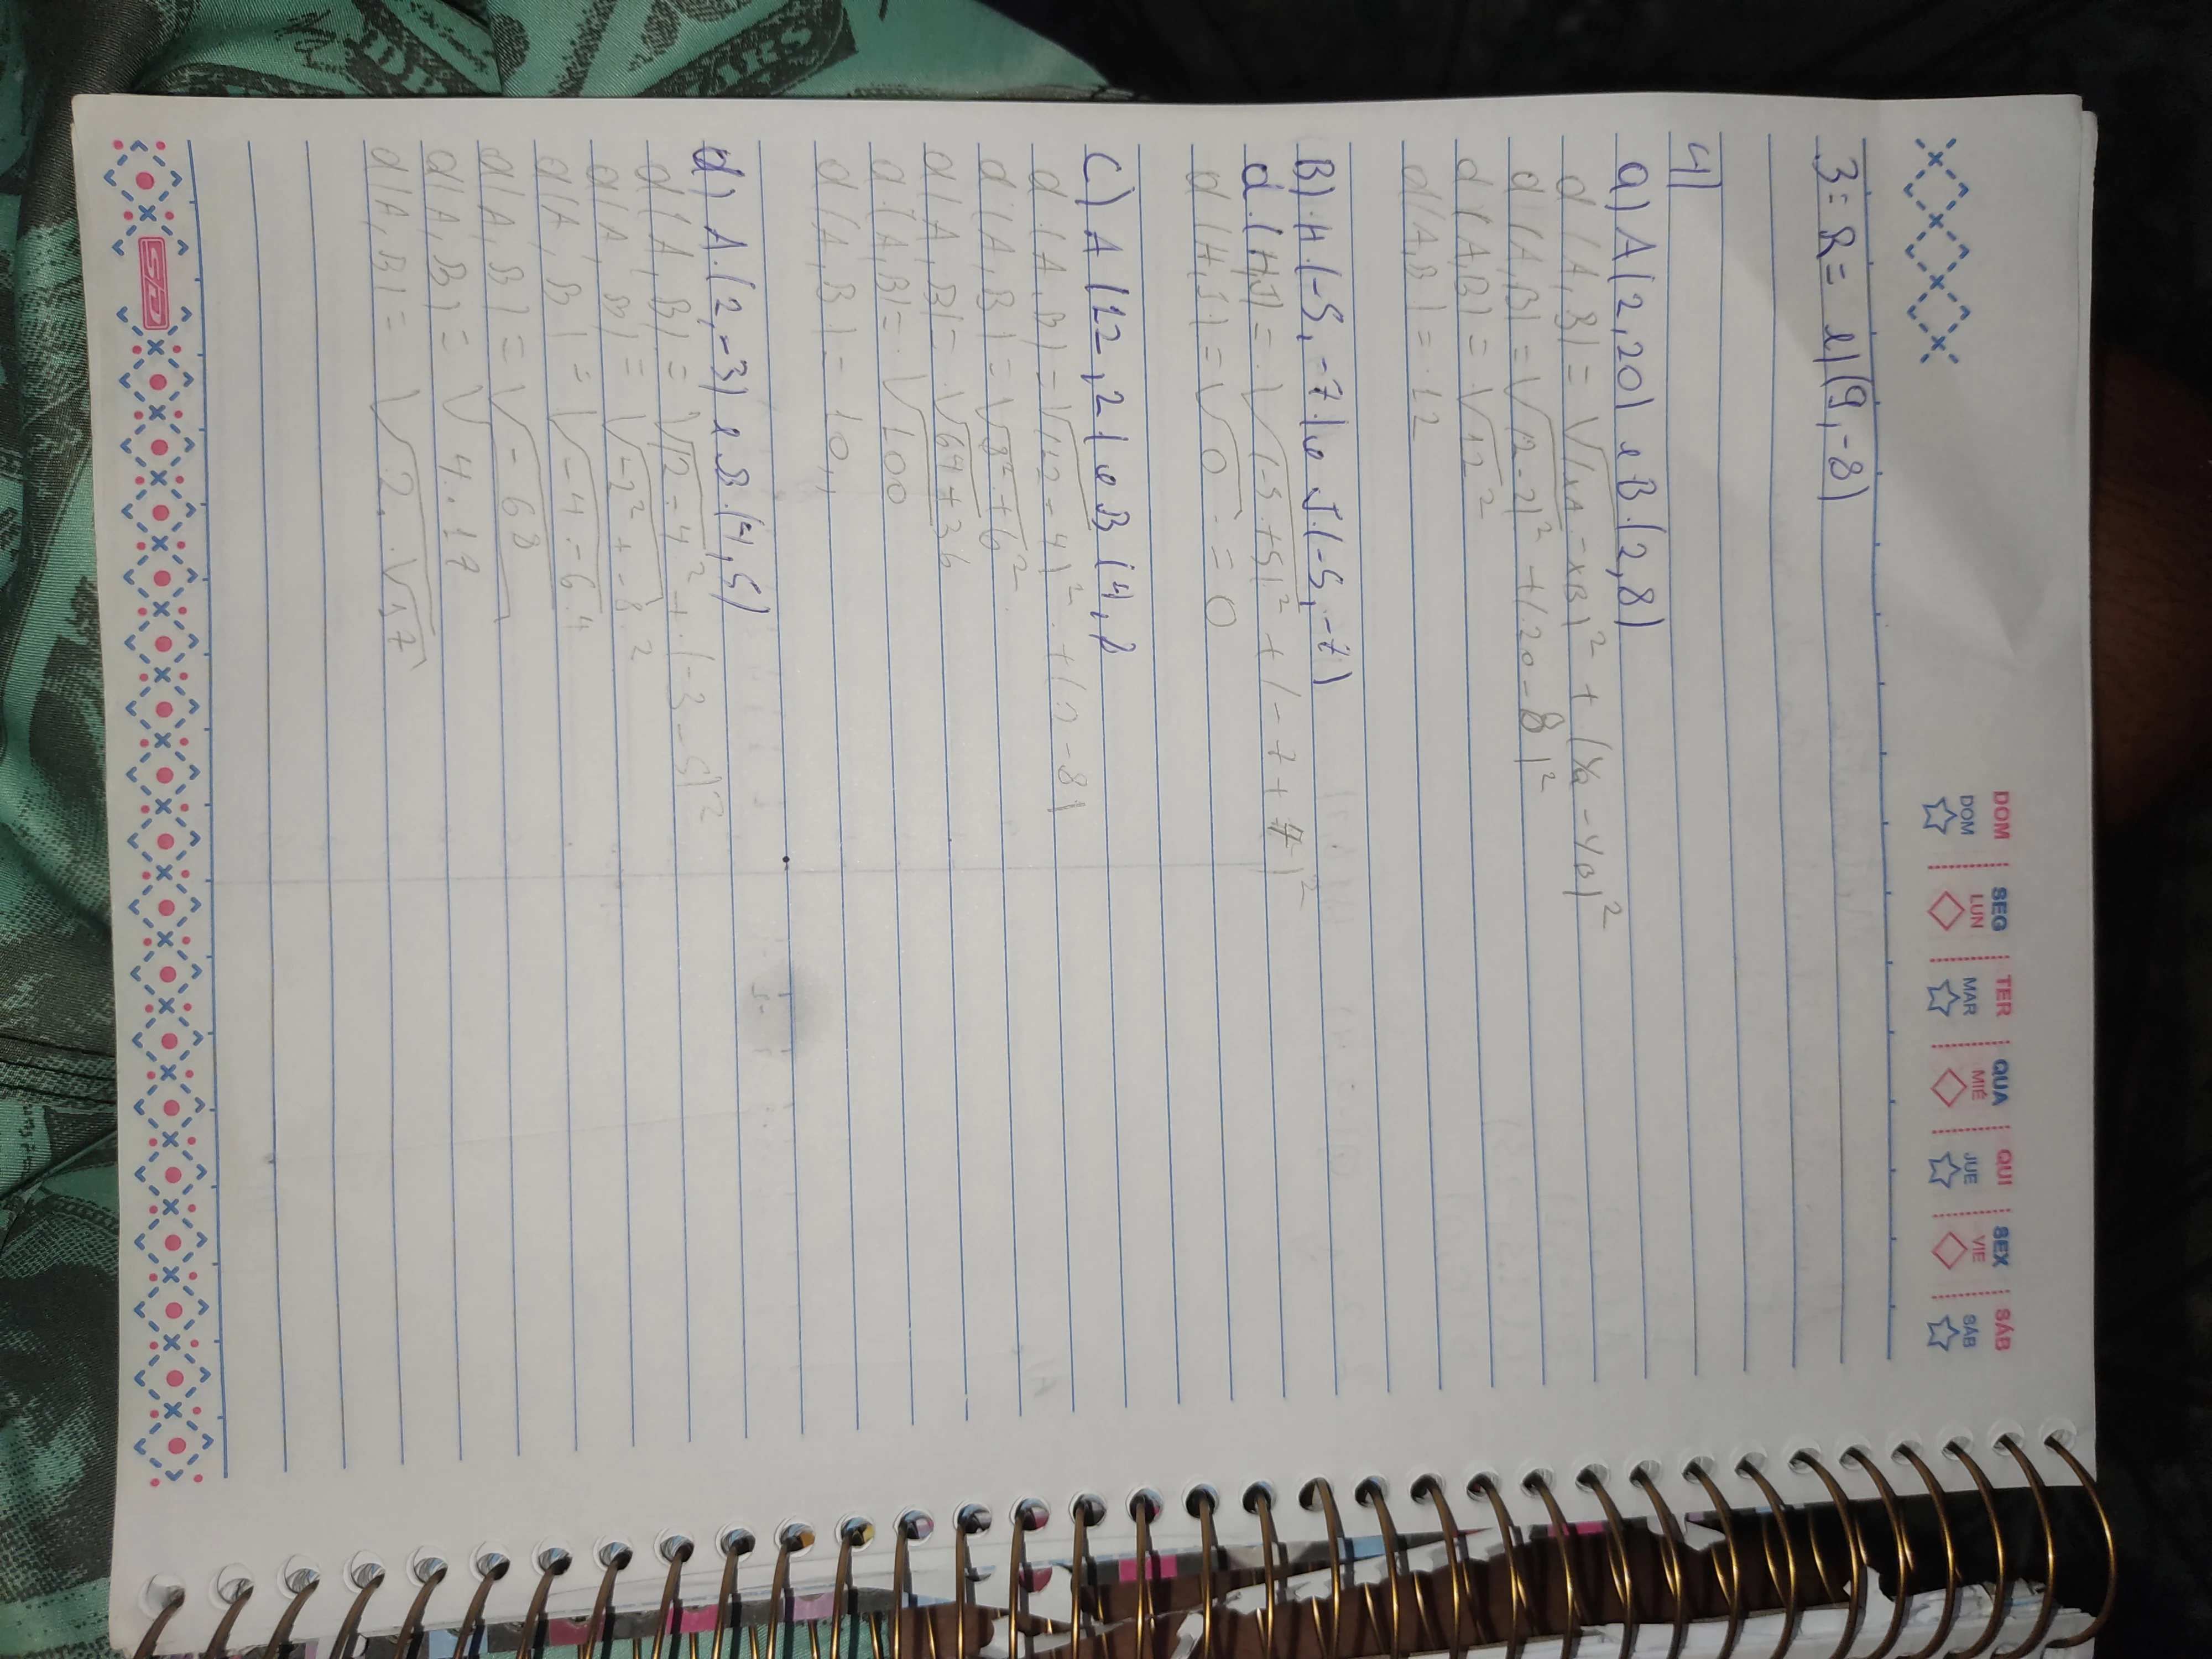 DOM SEG TER QUA QUI SEX SÁB
DOM LUN MAR MIÉ JUE VIE SÁB
3 = R = e) (9, -8)
4)
a) A (2, 20) e B (2, 8)
d (A, B) = √(xA - xB)² + (Ya - YB)²
d (A, B) = √(2 - 2)² + (20 - 8)²
d (A, B) = √12²
d (A, B) = 12
B) H (-5, -7) e J (-5, -7)
d (H, J) = √(-5 + 5)² + (-7 + 7)²
d (H, J) = √0 = 0
C) A (12, 2) e B (4, 8
d (A, B) = √(12 - 4)² + (2 - 8)
d (A, B) = √8² + 6²
d (A, B) = √64 + 36
d (A, B) = √100
d (A, B) = 10,
d) A (2, -3) e B (4, 5)
d (A, B) = √2 - 4² + (-3 - 5)²
d (A, B) = √-2² + -8²
d (A, B) = √-4 - 64
d (A, B) = √-68
d (A, B) = √4 . 17
d (A, B) = √2 . √17
SD